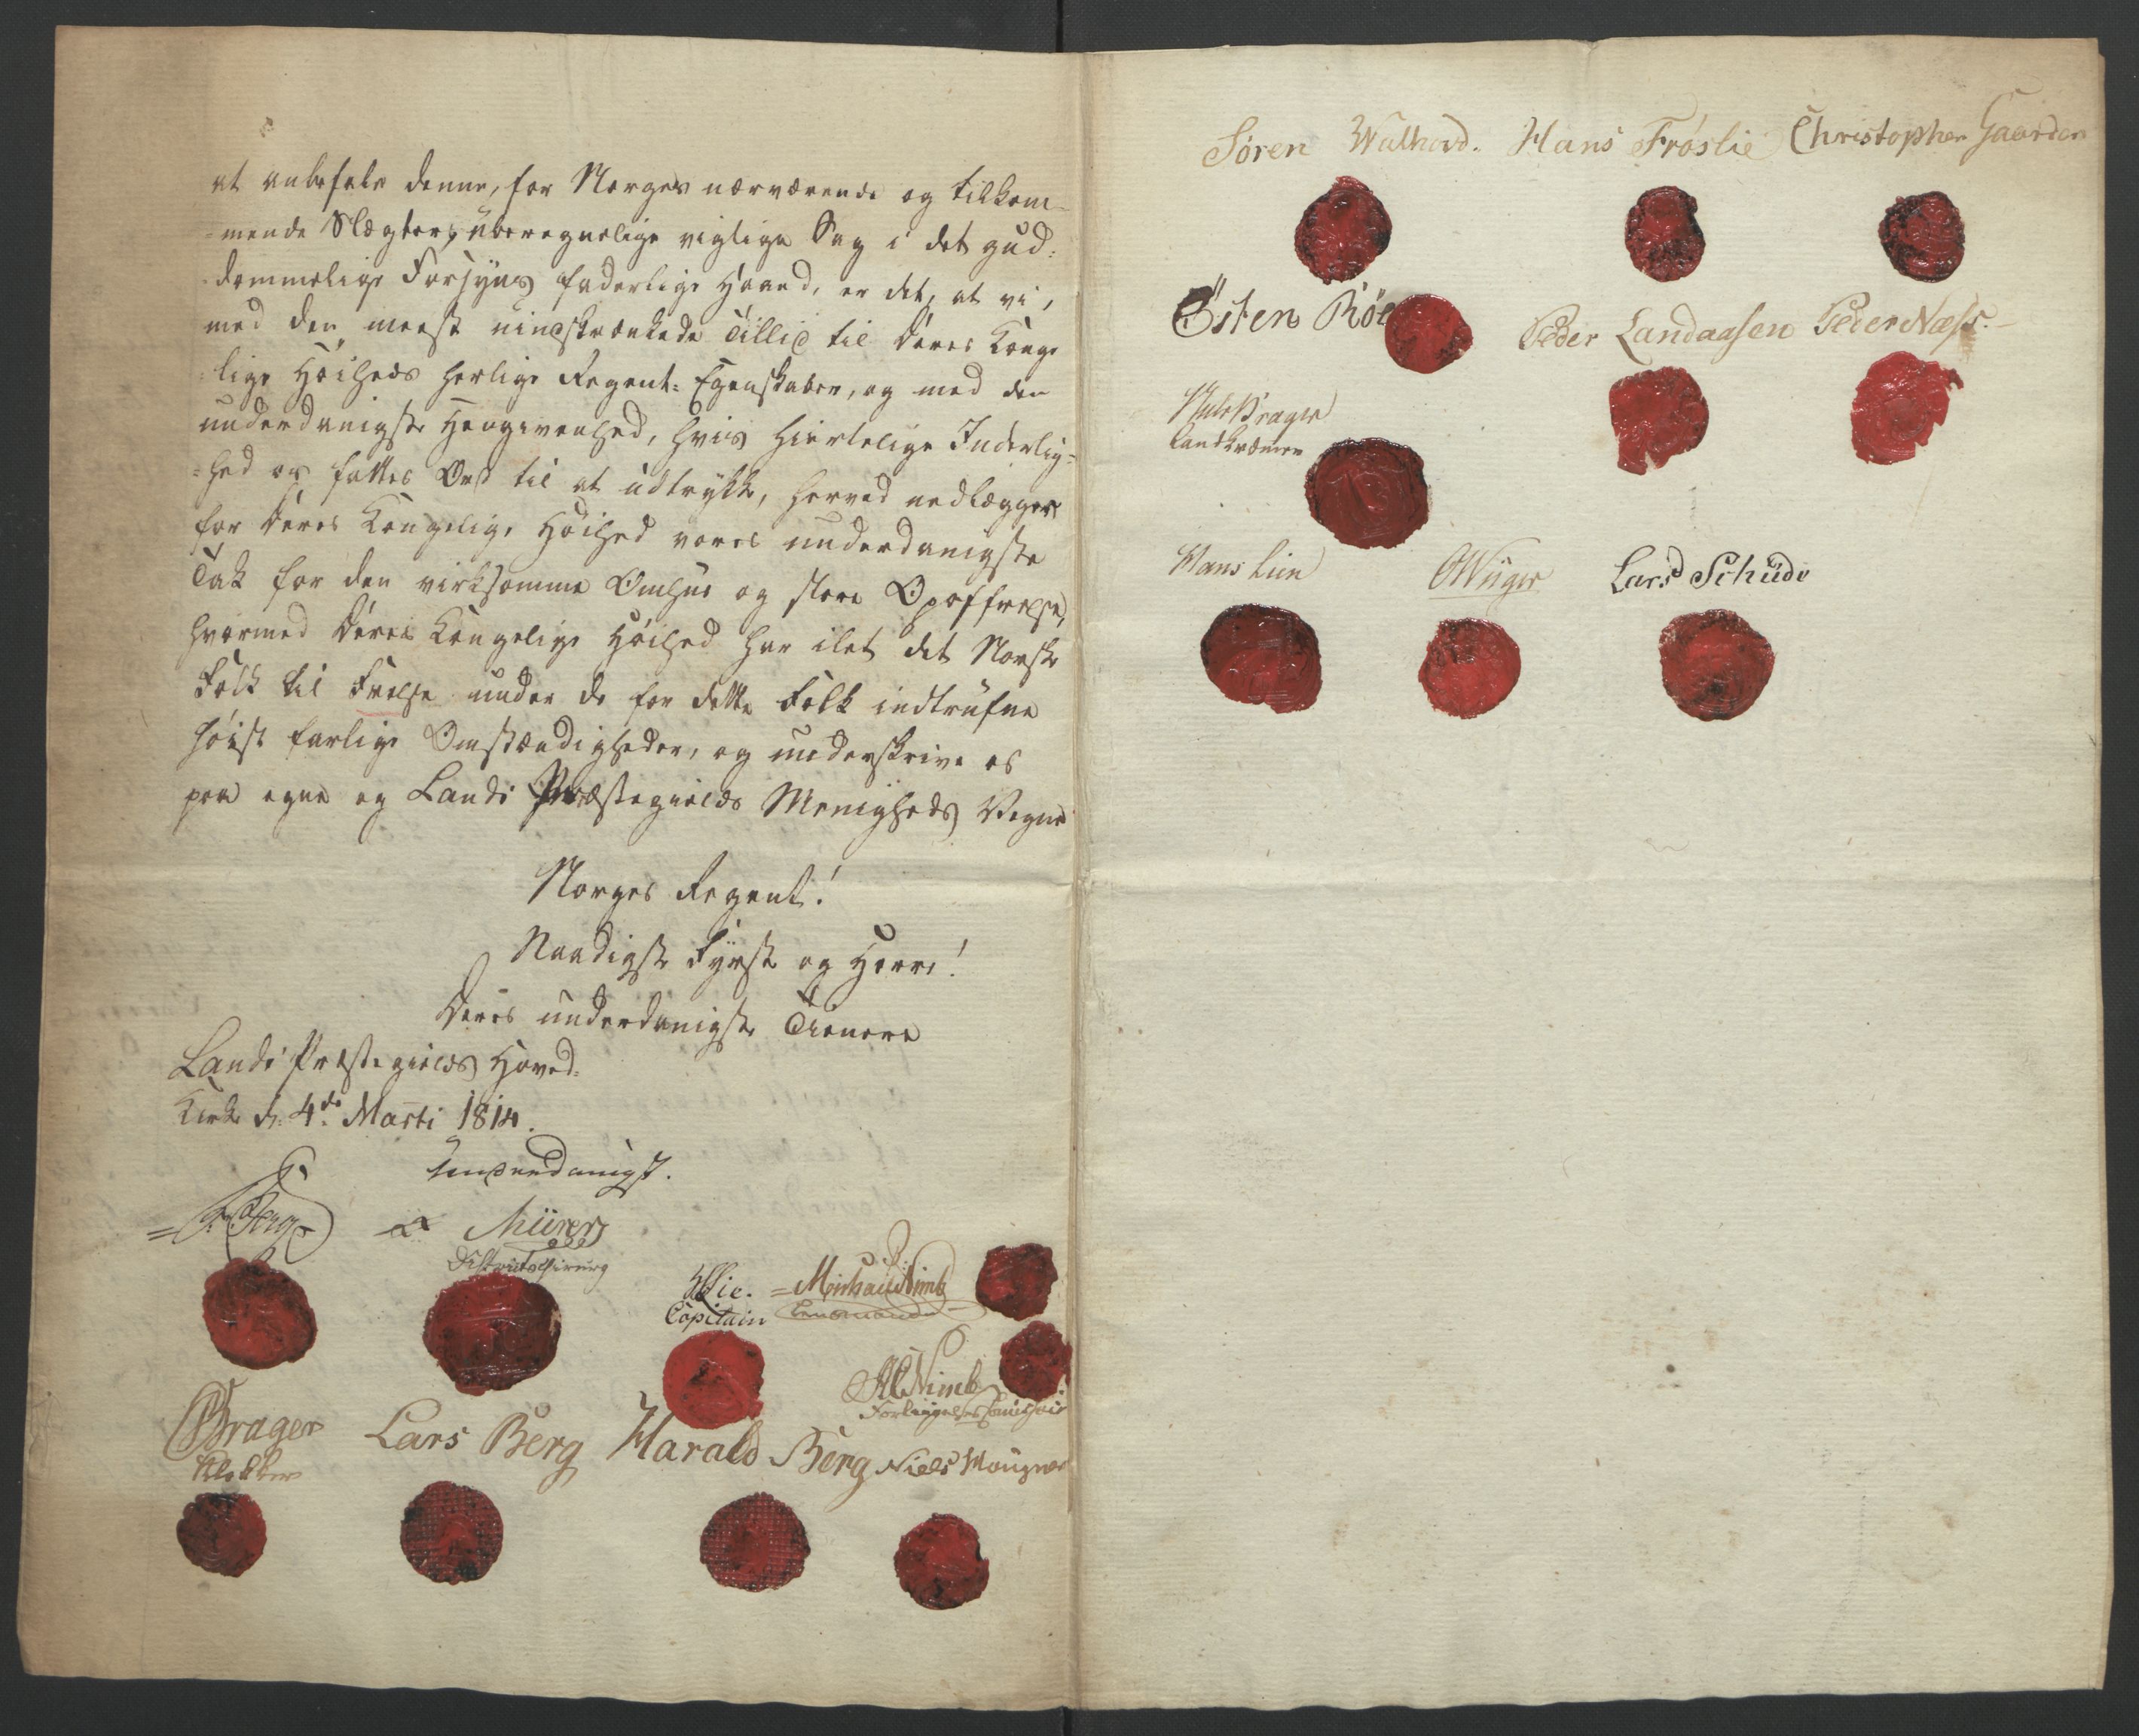 at anbefale denne, for Norges nærværende og tilkom-
mende Slægter, uberegnelige vigtige Sag i det gud-
dommelige Forsyns faderlige Haand, er det, at vi,
med den meest uindskrænkede Tillid til Deres Konge
lige Høiheds herlige Regent-Egenskaber, og med den
underdanigste Hengivenhed, hvis hiertelige Inderlig-
hed os fattes Ord til at udtrykke, herved nedlægger
for Deres Kongelige Høihed vores underdanigste
Tak for den virksomme Omhue og store Opoffrelse,
hvormed Deres Kongelige Høihed har ilet det Norske
Folk til Frelse under de for dette Folk indtrufne
høist farlige Omstændigheder, og underskrive os
paa egne og Lands Præstegields Menigheds Vegne
Norges Regent!
Naadigste Fyrste og Herre!
Deres underdanigste Tienere
Lands Præstegields Hoved-
Kirke d. 4de Marti 1814.
Underdanigst.
Berg
Mürer
Districtschirurg
Lie.
Capitain
Michael Nimb
Lensmand
Nimb
Forligelses Comissair
Brager
Klokker
Lars Berg
Harald Berg
Niels
Søren Walhovd. Hans Frøslie Christopher Gaarder
Östen Röe
Peder Landaasen Peder Næss.
Brager
Landkræmer
Hans Lien
Lars Schüde